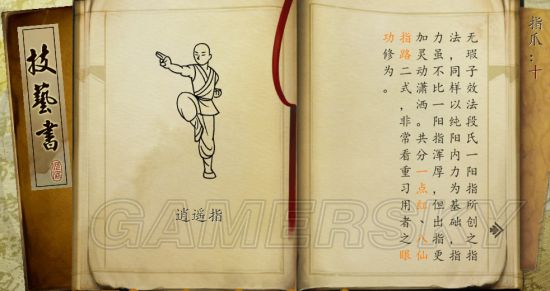 技藝書
逍遥指
指爪：十
无瑕子效法段氏一阳指所创之指
法，同样以纯阳内力为基础，指
力虽不比一阳指浑厚，但出指更
加灵动潇洒。共分一点红、八仙
指路二式，非常看重习用者之眼
功修为。
GAMERSKY